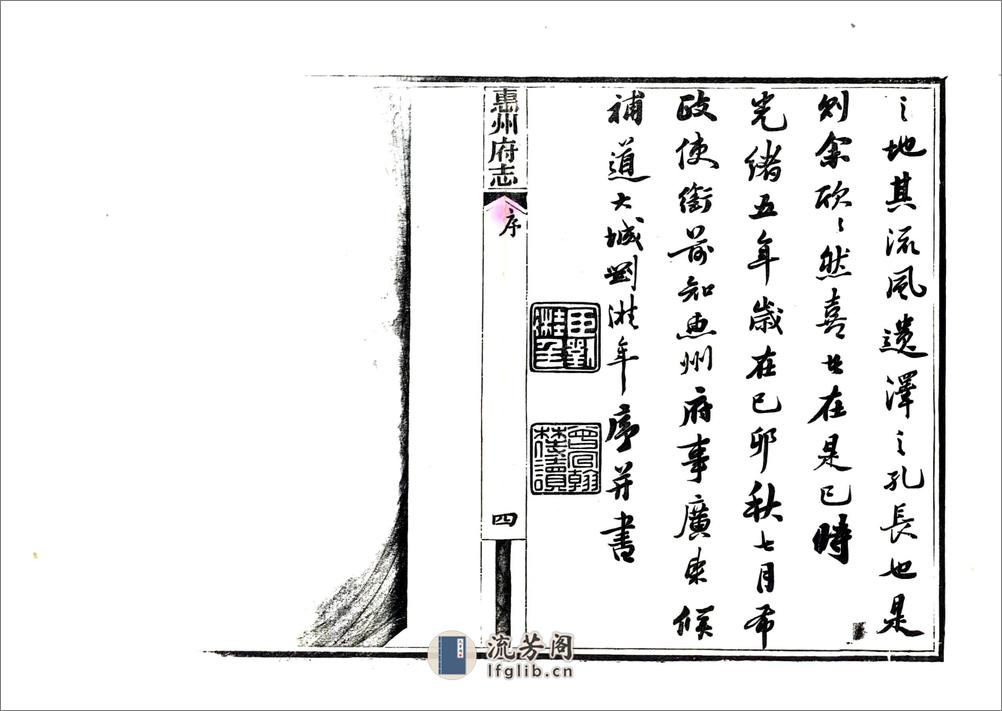 之地其流風遺澤之孔長也是
則余欣欣然喜者在是已時
光緒五年歲在己卯秋七月布
政使銜前知惠州府事廣東候
補道大城劉溎年序并書
惠州府志
序
四
流芳阁
lfglib.cn